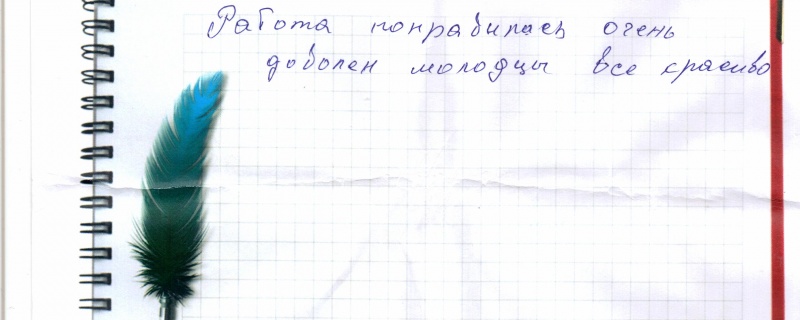 Работа понравилась очень
доволен молодцы все красиво